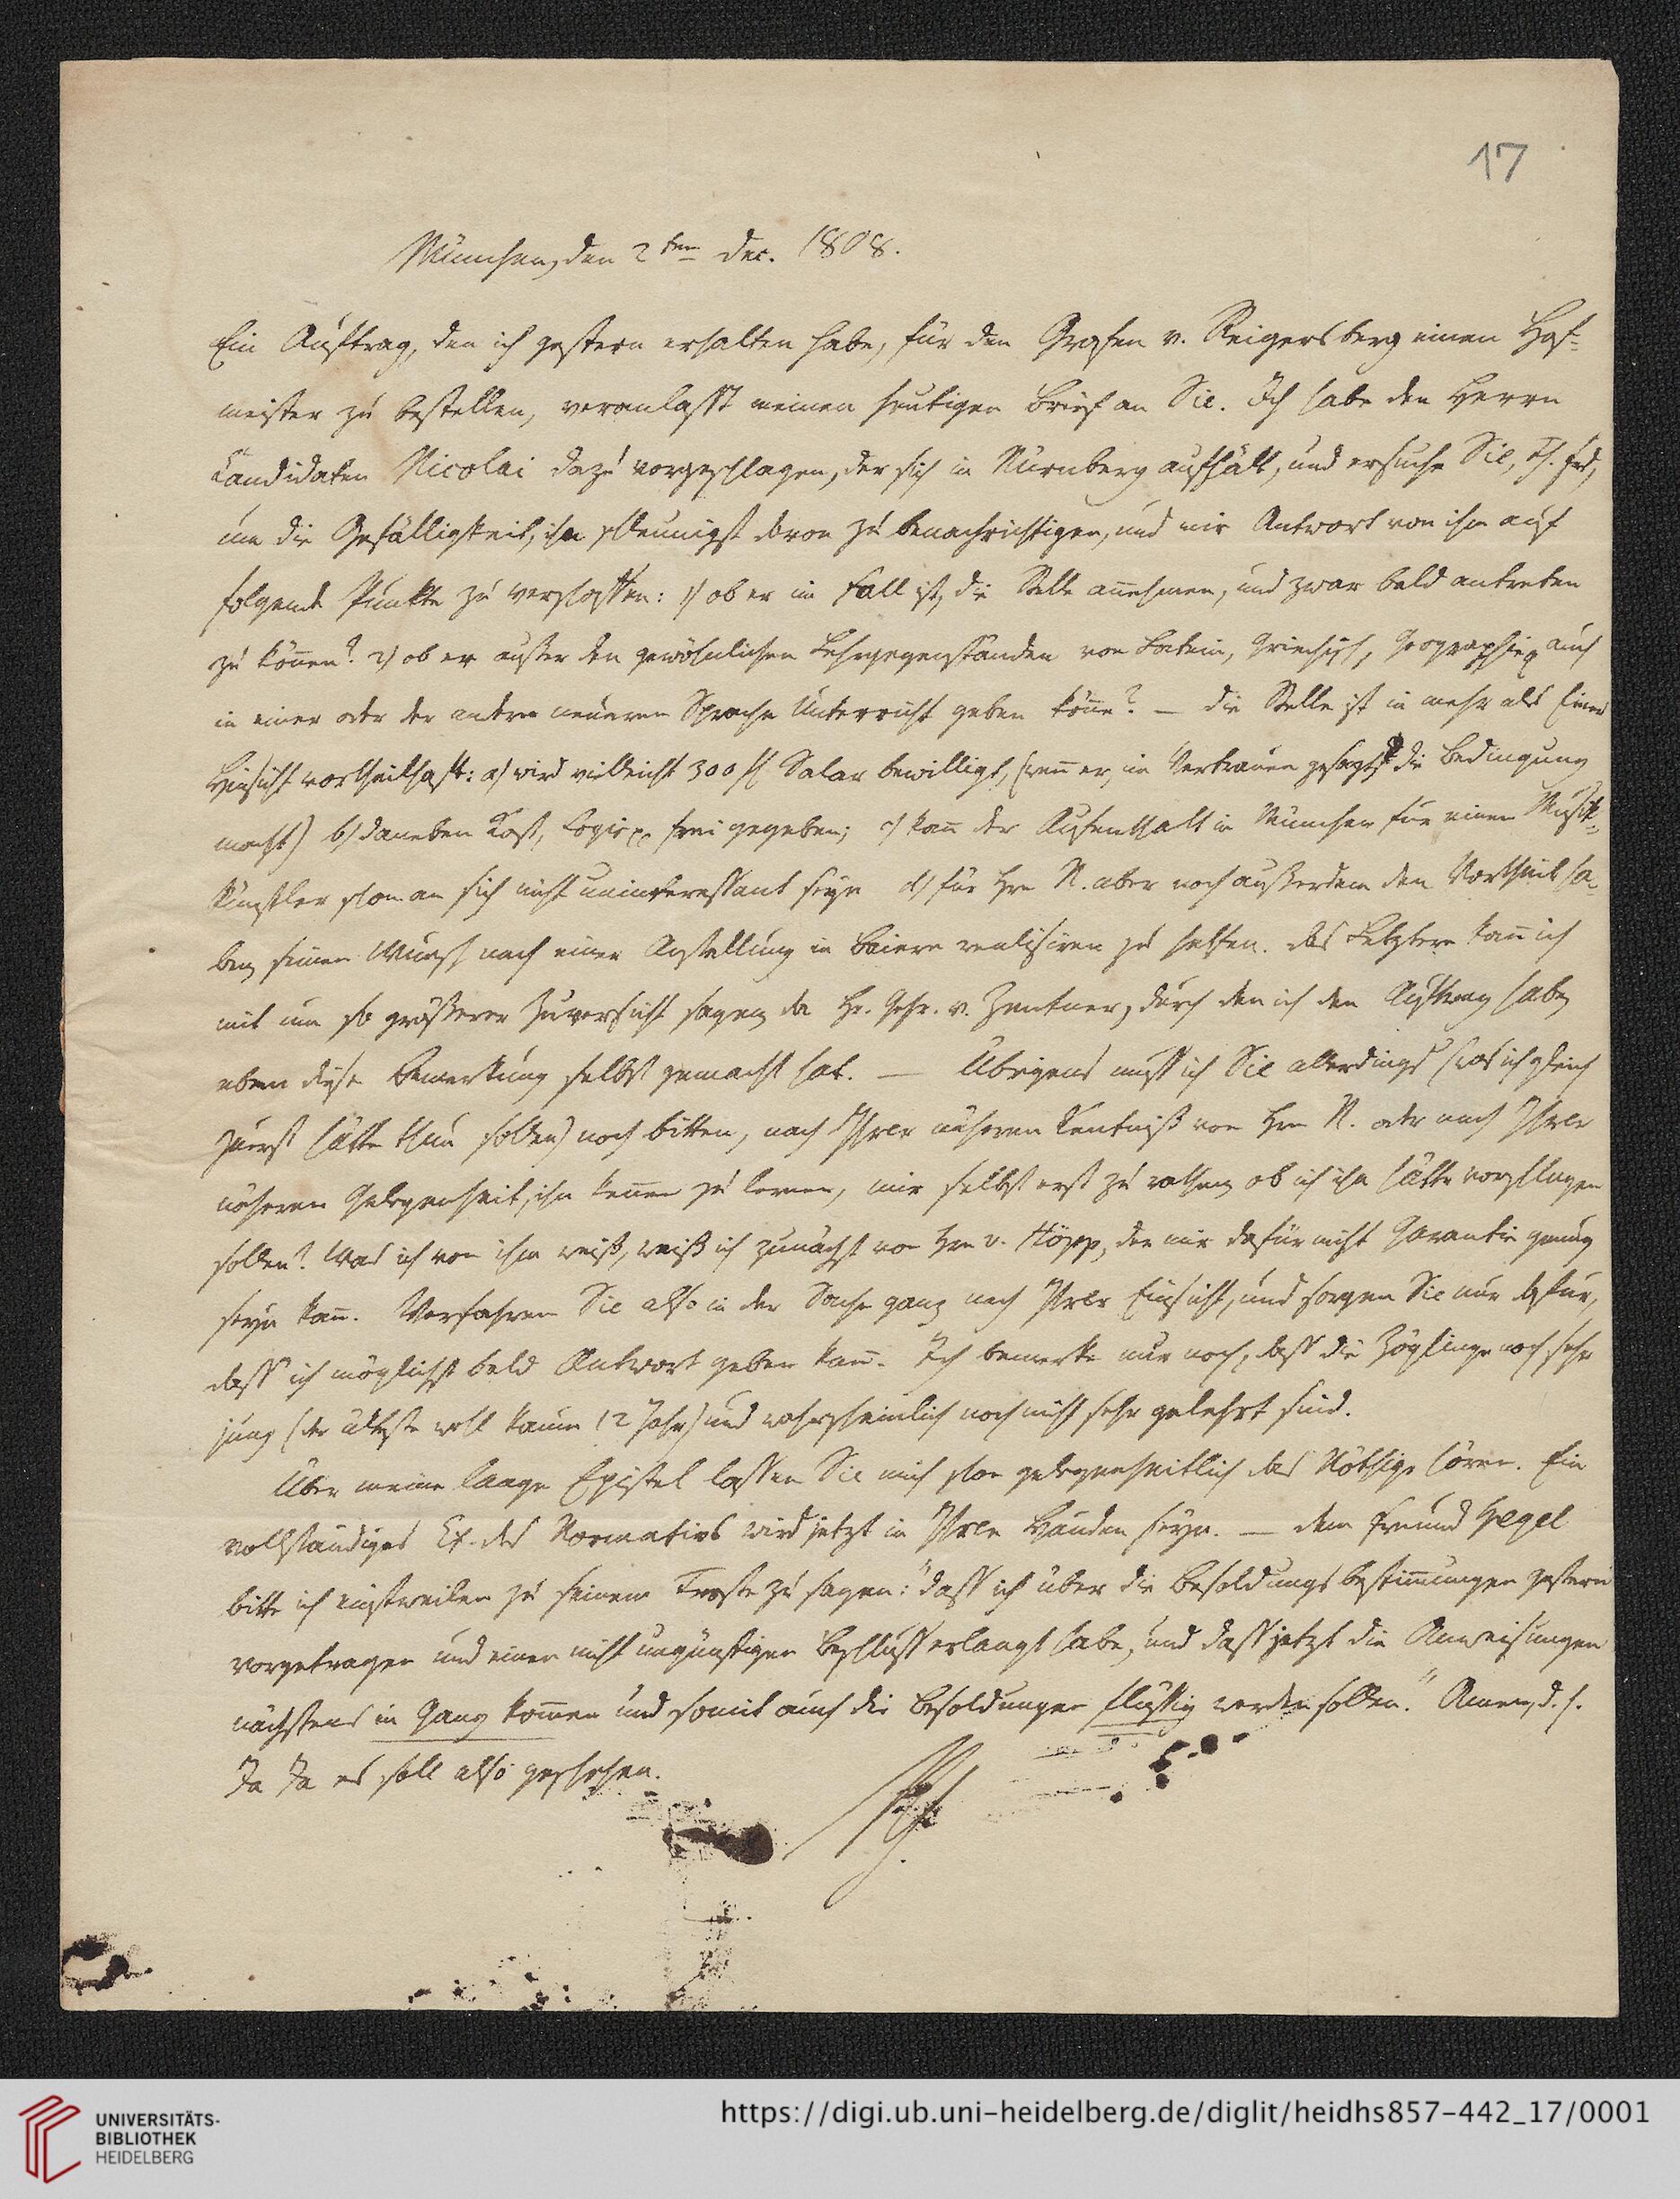 17
München, den 2ten Dec. 1808.
Ein Auftrag, den ich gestern erhalten habe, für den Grafen v. Reigersberg einen Hof-
meister zu bestellen, veranlaßt meinen heutigen Brief an Sie. Ich habe den Herrn
Kandidaten Nicolai dazu vorgeschlagen, der sich in Nürnberg aufhält, und ersuche Sie, th. Frd,
um die Gefälligkeit, ihn schleunigst davon zu benachrichtigen, und mir Antwort von ihm auf
folgende Punkte zu verschaffen: 1) ob er im Fall ist, die Stelle anehmen, und zwar bald antreten
zu könen? 2) ob er außer den gewöhnlichen Lehrgegenständen von Latein, Griechisch, Geographie auch
in einer oder der andern neueren Sprache Unterricht geben köne? — Die Stelle ist in mehr als Einer
Hinsicht vortheilhaft: a) wird vielleicht 300 fl. Salar bewilligt, (wen er, im Vertrauen gesagt, die Bedingung
macht) b) daneben Kost, Logis frei gegeben; c) kan der Aufenthalt in München für einen Musik-
künstler schon an sich nicht uninteressant seyn d) für Hrn N. aber noch außerdem den Vortheil ha-
ben, seinen Wunsch nach einer Anstellung in Baiern realisiren zu helfen. Das Letztere kan ich
mit um so größerer Zuversicht sagen, da Hr. Gehr. v. Zentner, durch den ich den Auftrag habe,
eben diese Bemerkung selbst gemacht hat. — Übrigens muß ich Sie allerdings (was ich gleich
zuerst hätte thun sollen) noch bitten, nach Ihrer näheren Kentniß von Hrn N. oder nach Ihrer
näheren Gelegenheit, ihn kenen zu lernen, mir selbst erst zu rathen, ob ich ihn hätte vorschlagen
sollen? Was ich von ihm weiß, weiß ich zunächst von Hrn v. Höpp, der mir dafür nicht Garantie genug
seyn kan. Verfahren Sie also in der Sache ganz nach Ihrer Einsicht, und sorgen Sie nur dafür,
daß ich möglichst bald Antwort geben kan. Ich bemerke nur noch, daß die Zöglinge noch sehr
jung (der älteste wohl kaum 12 Jahr) und wahrscheinlich noch nicht sehr gelehrt sind.
Über meine lange Epistel lassen Sie mich schon gelegenheitlich das Nöthige hören. Ein
vollständiges Ex. des Normativs wird jetzt in Ihren Händen seyn. — Dem Freund Hegel
bitte ich einstweilen zu seinem Troste zu sagen: "daß ich über die Besoldungsbestimungen gestern
vorgetragen und einen nicht ungünstigen Beschluß erlangt habe, und daß jetzt die Anweisungen
nächstens in Gang komen und somit auch die Besoldungen flüssig werden sollen." Amen, d. h.
Ja Ja es soll also geschehen.
UNIVERSITÄTS-
BIBLIOTHEK
HEIDELBERG
https://digi.ub.uni-heidelberg.de/diglit/heidhs857-442_17/0001